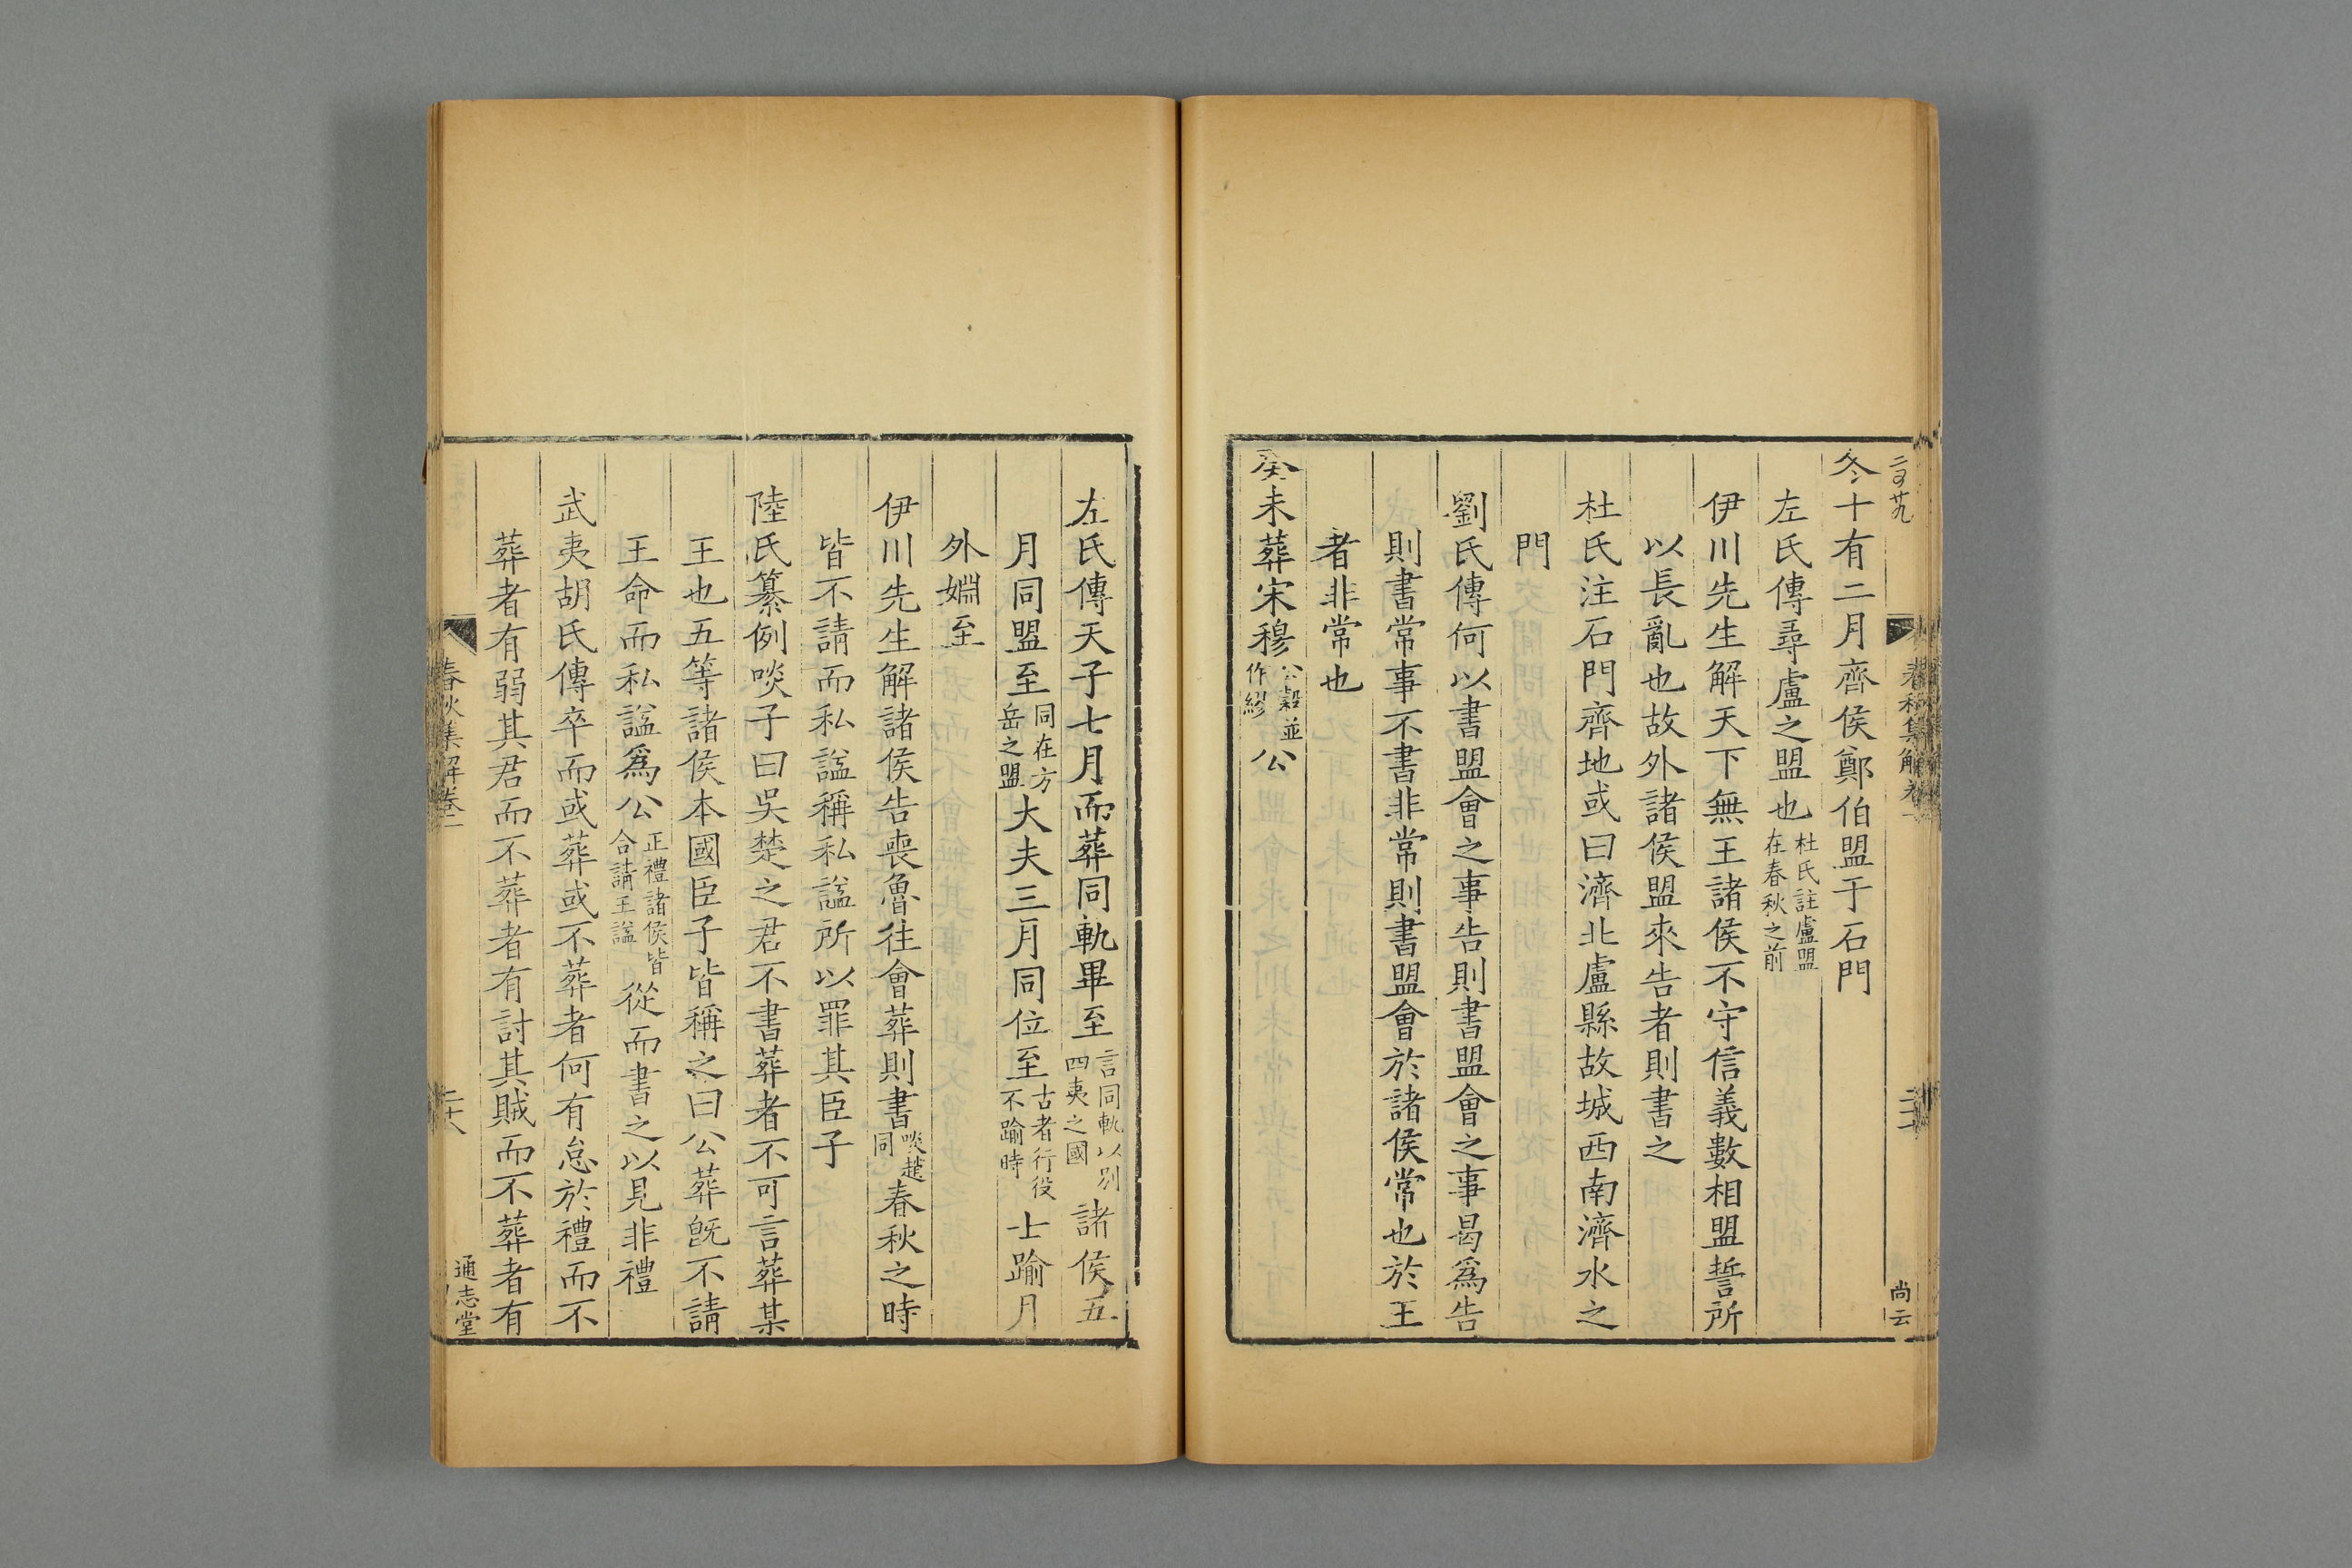 春秋集解卷一
尚云
冬十有二月齊侯鄭伯盟于石門
左氏傳尋盧之盟也杜氏註盧盟在春秋之前
伊川先生解天下無王諸侯不守信義數相盟誓所
以長亂也故外諸侯盟來告者則書之
杜氏注石門齊地或曰濟北盧縣故城西南濟水之
門
劉氏傳何以書盟會之事告則書盟會之事曷爲告
則書常事不書非常則書盟會於諸侯常也於王
者非常也
癸未葬宋穆公穀並作繆公
左氏傳天子七月而葬同軌畢至言同軌以別四夷之國諸侯五
月同盟至同在方岳之盟大夫三月同位至古者行役不踰時士踰月
外姻至
伊川先生解諸侯告喪魯往會葬則書啖趙同春秋之時
皆不請而私諡稱私諡所以罪其臣子
陸氏纂例啖子曰吳楚之君不書葬者不可言葬某
王也五等諸侯本國臣子皆稱之曰公葬旣不請
王命而私諡爲公正禮諸侯皆合請王諡從而書之以見非禮
武夷胡氏傳卒而或葬或不葬者何有怠於禮而不
葬者有弱其君而不葬者有討其賊而不葬者有
春秋集解卷一
二十六
通志堂